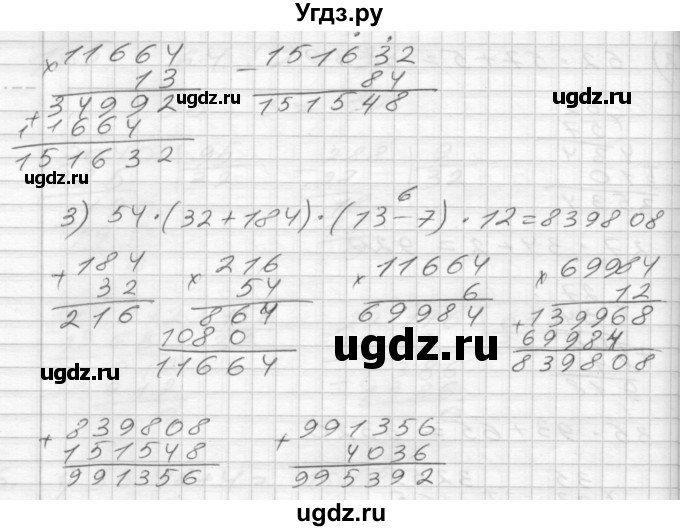 Угдз.ру
× 11664
13
+ 34992
11664
151632
− 151632
84
151548
ugdz.ru
ugdz.ru
ugdz.ru
6
3) 54·(32+184)·(13−7)·12=839808
+ 184
32
216
× 216
54
864
1080
11664
× 11664
6
69984
× 69984
12
+ 139968
69984
839808
ugdz.ru
ugdz.ru
ugdz.ru
+ 839808
151548
991356
+ 991356
4036
995392
ugdz.ru
ugdz.ru
ugdz.ru